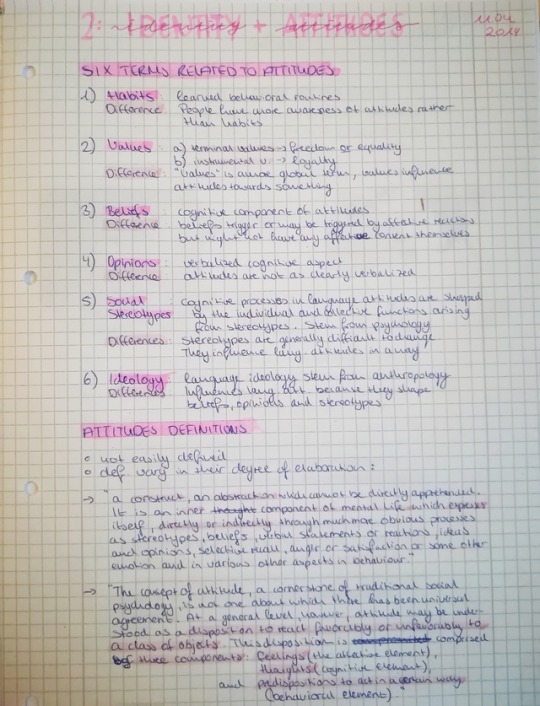 2: IDENTITY + ATTITUDES
11.04
2018
SIX TERMS RELATED TO ATTITUDES
1) Habits: learned behavioral routines
Difference: People have more awareness of attitudes rather
than habits
2) Values: a) terminal values -> freedom or equality
b) instrumental v. -> loyalty
Difference: "Values" is a more global term, values influence
attitudes towards something
3) Beliefs cognitive component of attitudes
Difference beliefs trigger or may be triggered by affective reactions
but might not have any affective content themselves
4) Opinions: verbalized cognitive aspect
Difference attitudes are not as clearly verbalized
5) Social : cognitive processes in language attitudes are shaped
Stereotypes by the individual and collective functions arising
from stereotypes. Stem from psychology
Differences: Stereotypes are generally difficult to change
They influence lang. attitudes in a way
6) Ideology: language ideology stem from anthropology
Differences influences lang. att. because they shape
beliefs, opinions and stereotypes
ATTITUDES DEFINITIONS
o not easily defined
o def vary in their degree of elaboration:
-> "a construct, an abstraction which cannot be directly apprehended.
It is an inner thought component of mental life which expresses
itself, directly or indirectly through much more obvious processes
as stereotypes, beliefs, verbal statements or reactions, ideas
and opinions, selective recall, anger or satisfaction or some other
emotion and in various other aspects in behaviour."
-> "The concept of attitude, a cornerstone of traditional social
psychology, is not one about which there has been universal
agreement. At a general level, however, attitude may be under-
stood as a disposition to react favorably or unfavorably to
a class of objects. This disposition is comprised
of three components: feelings (the affective element),
thoughts (cognitive element),
and predispositions to act in a certain way
(behavioral element)."